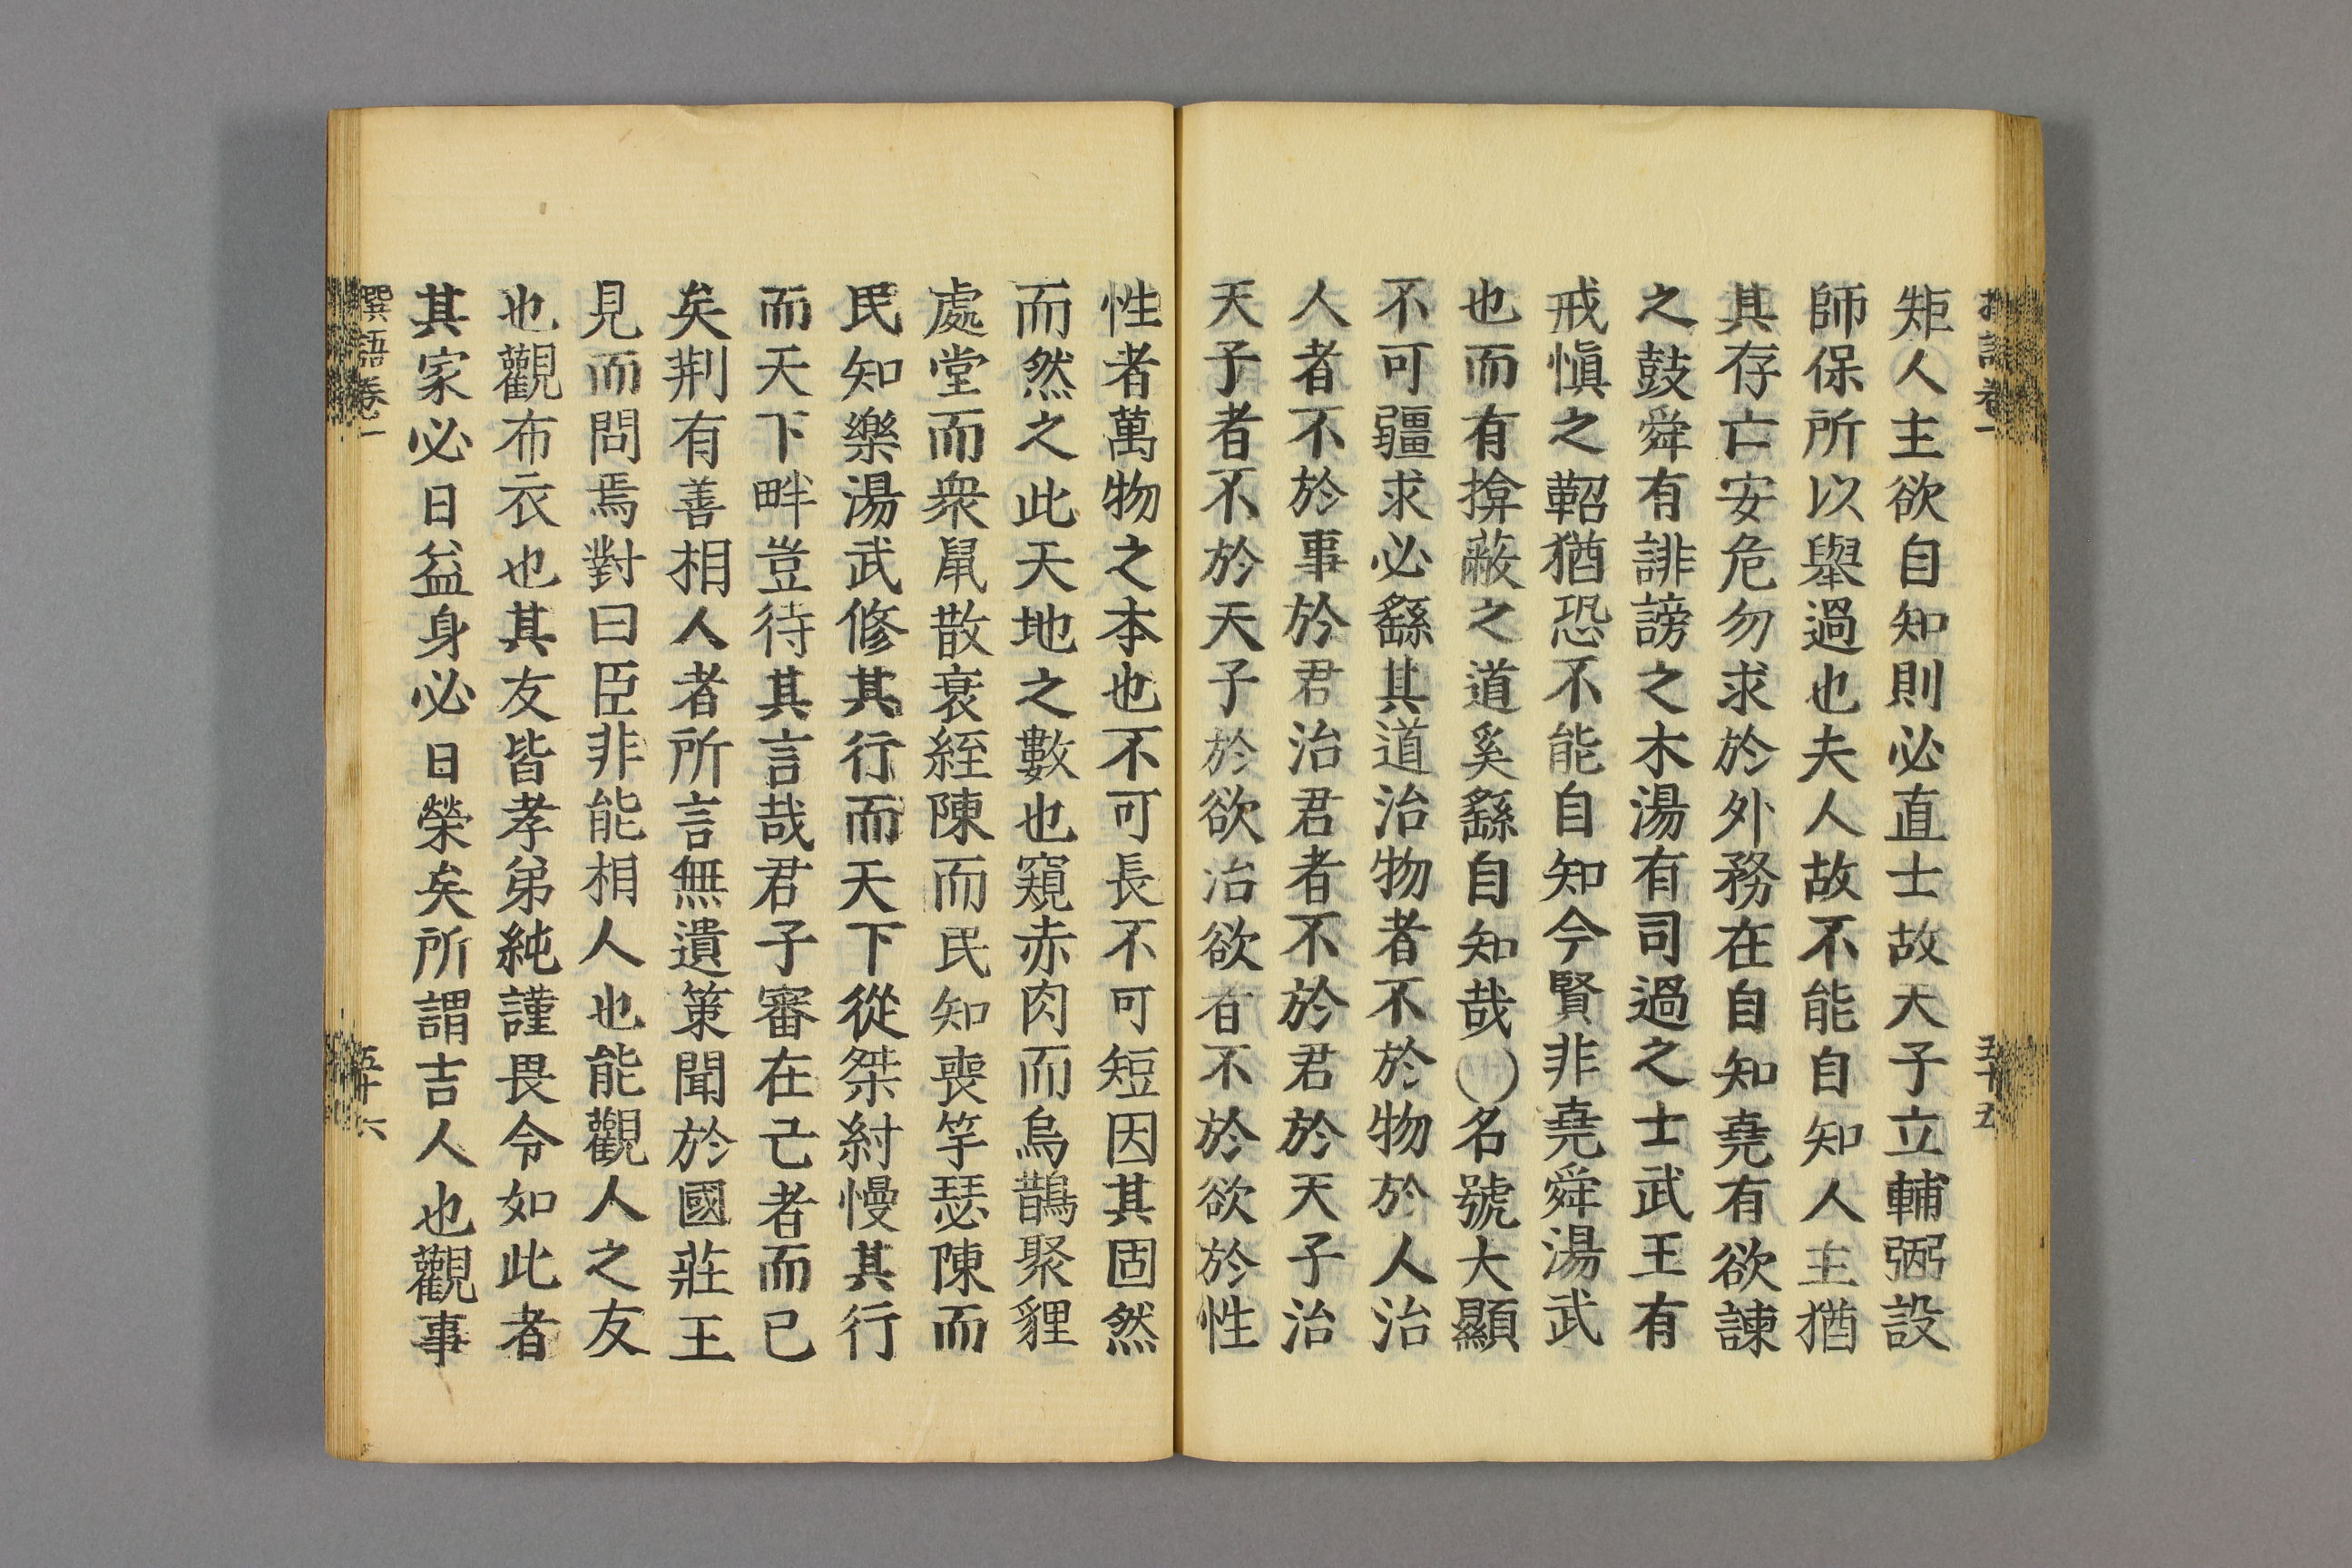 矩人主欲自知則必直士故天子立輔弼設
師保所以舉過也夫人故不能自知人主猶
其存亡安危勿求於外務在自知堯有欲諫
之鼓舜有誹謗之木湯有司過之士武王有
戒慎之鞀猶恐不能自知今賢非堯舜湯武
也而有揜蔽之道奚繇自知哉〇名號大顯
不可彊求必繇其道治物者不於物於人治
人者不於事於君治君者不於君於天子治
天子者不於天子於欲治欲者不於欲於性
性者萬物之本也不可長不可短因其固然
而然之此天地之數也窺赤肉而烏鵲聚貍
處堂而衆鼠散衰絰陳而民知喪竽瑟陳而
民知樂湯武修其行而天下從桀紂慢其行
而天下畔豈待其言哉君子審在己者而已
矣荆有善相人者所言無遺策聞於國莊王
見而問焉對曰臣非能相人也能觀人之友
也觀布衣也其友皆孝弟純謹畏令如此者
其家必日益身必日榮矣所謂吉人也觀事
撰語卷一
五十六